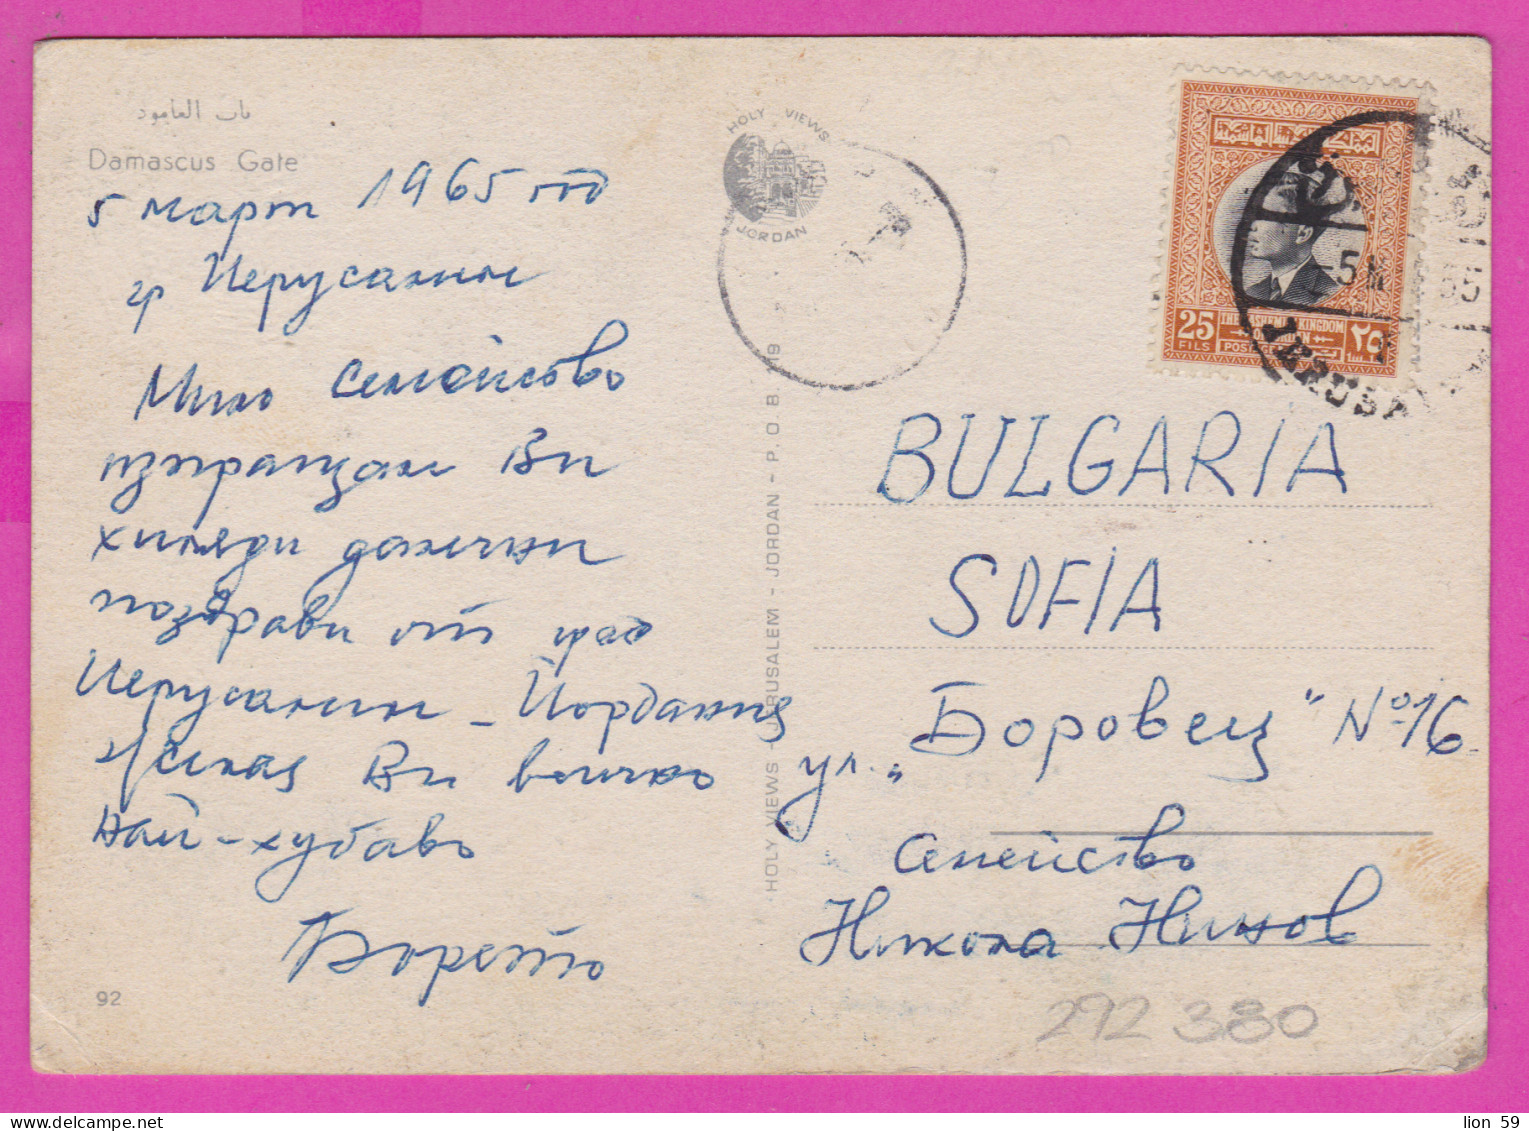 باب العامود
Damascus Gate
5 март 1965 год
гр Иерусалим
Мило Семейство
изпращам Ви
хиляди далечни
поздрави от град
Иерусалим - Йордания
Желая Ви всичко
най-хубаво
Борето
92
HOLY VIEWS
JORDAN
HOLY VIEWS - JERUSALEM - JORDAN - P.O.B. 19
المملكة الأردنية الهاشمية
25
FILS
THE HASHEMITE KINGDOM
OF JORDAN
POSTAGE
٢٥
فلس
5 III 65
JERUSA
BULGARIA
SOFIA
ул. „Боровец" №16
Семейство
Никола Нинов
292 380
lion 59